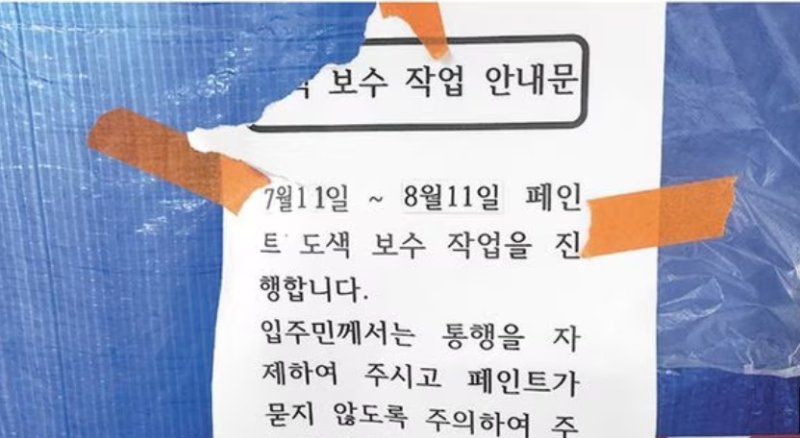 보수 작업 안내문
7월11일 ~ 8월11일 페인
트 도색 보수 작업을 진
행합니다.
입주민께서는 통행을 자
제하여 주시고 페인트가
묻지 않도록 주의하여 주